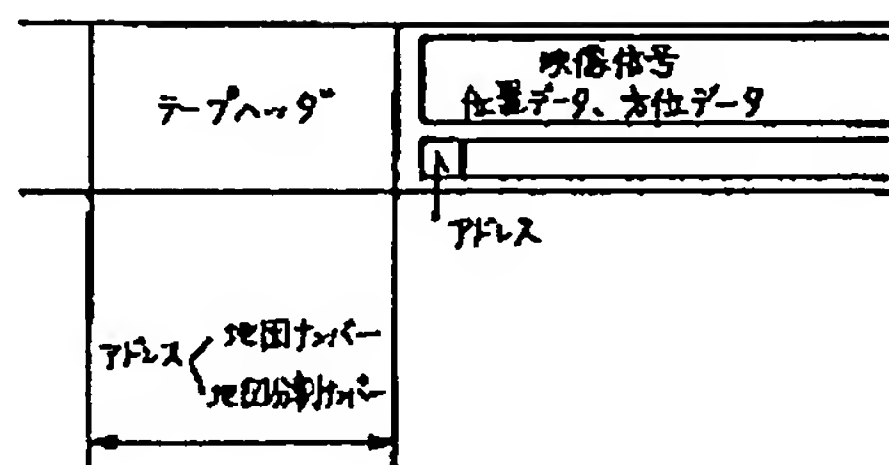 映像信号
テープヘッダ
位置データ、方位データ
アドレス
アドレス
地図ナンバー
地図分割ナンバー